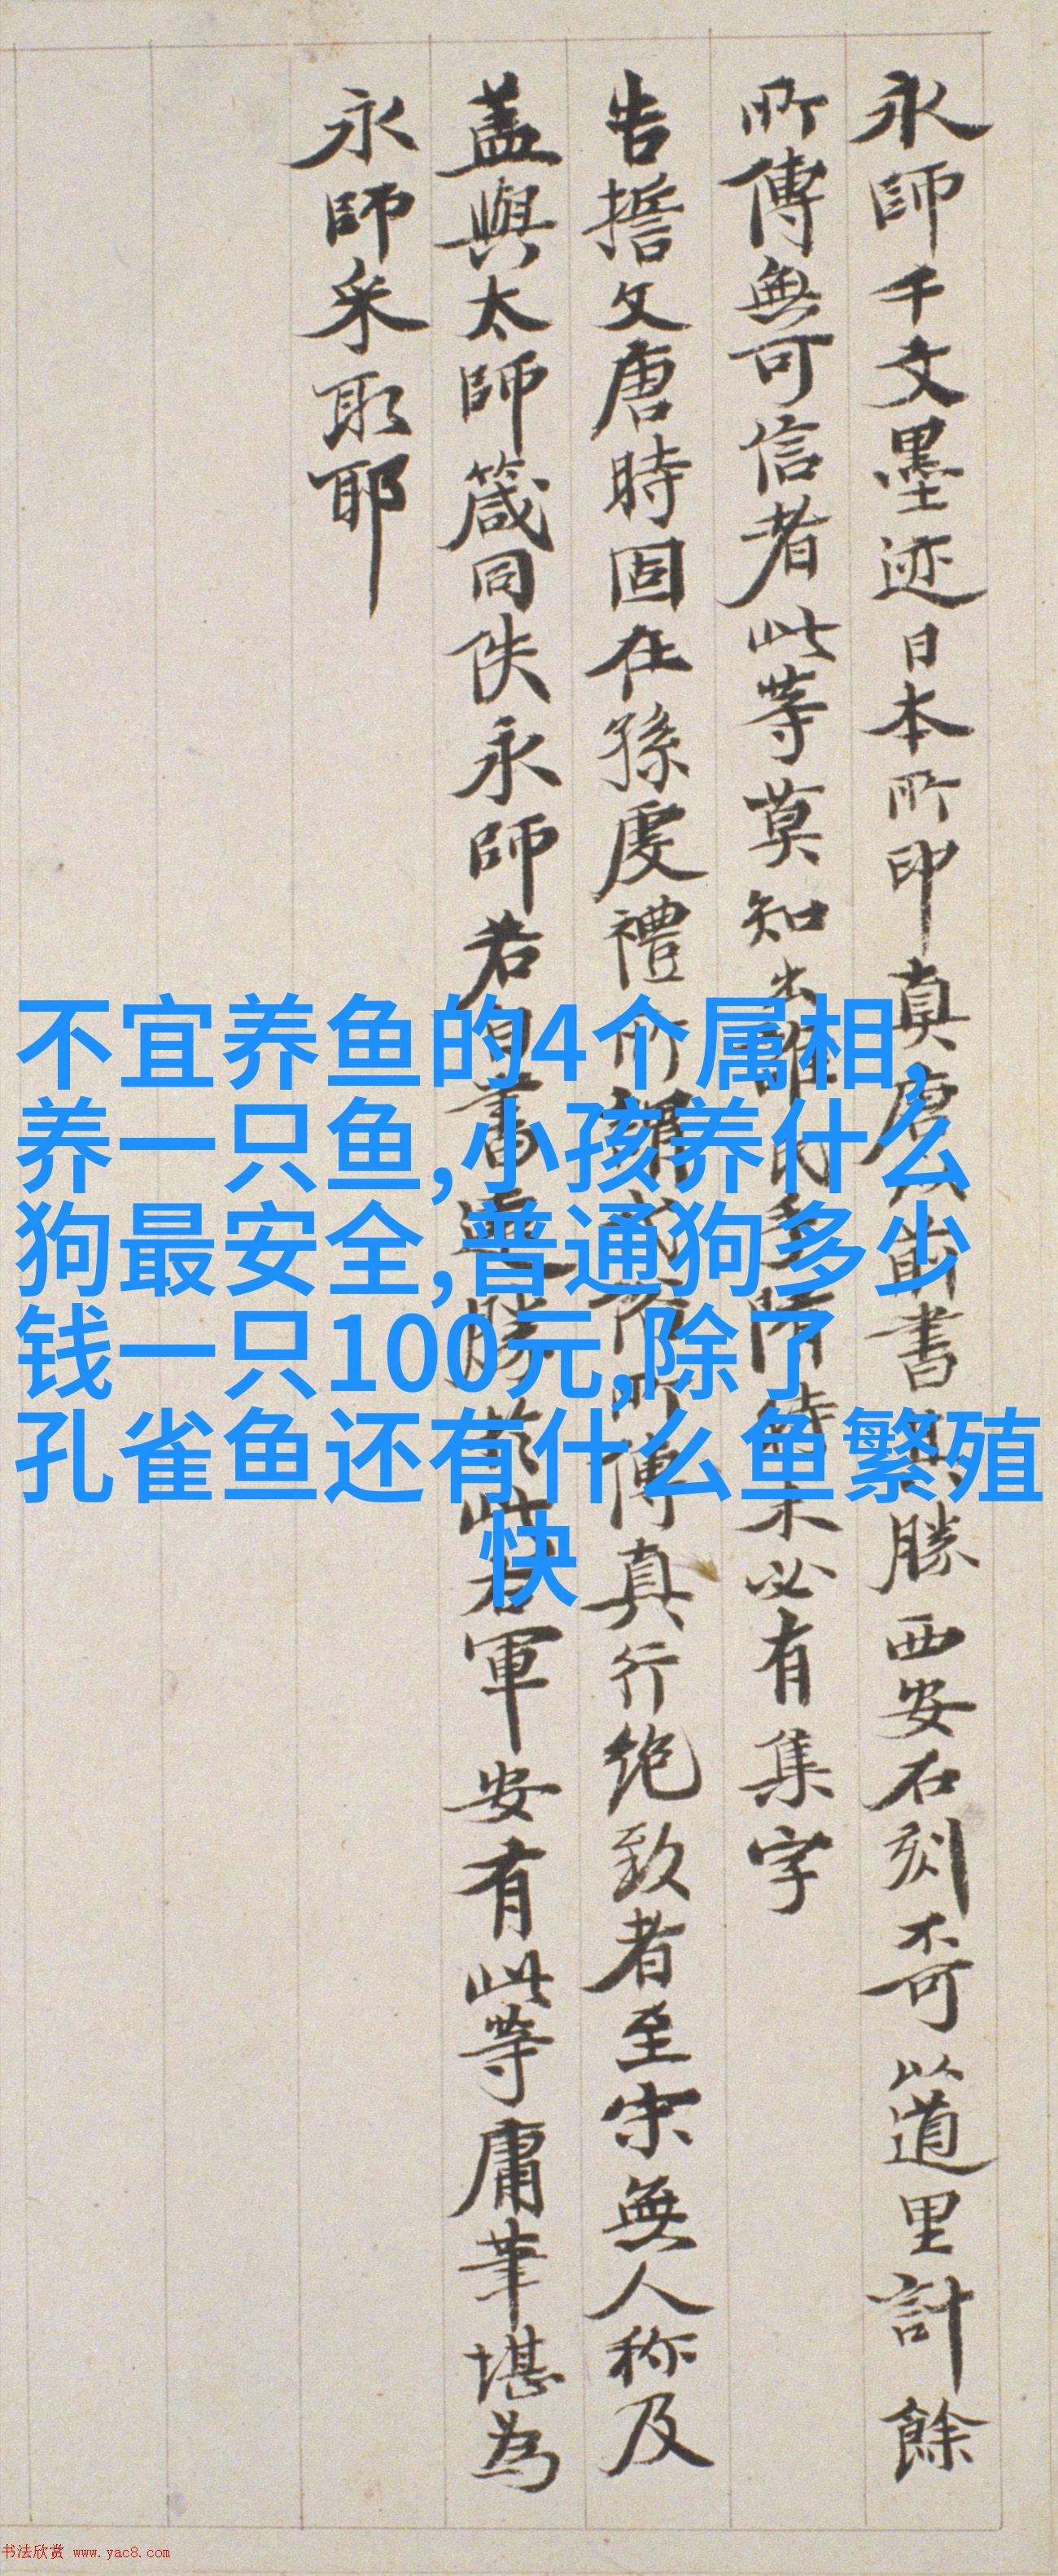 永師千文墨迹日本所印真唐人前書
勝西安石刻不可以道里計餘
所傳無可信者此等莫知出誰氏手
未必有集字
告誓文唐時固在孫虔禮所謂
傳真行绝致者至宋無人称及
盖與太師箴同佚永師若
書
右軍安有此等庸筆堪為
永師采取耶
不宜养鱼的4个属相,
养一只鱼,小孩养什么
狗最安全,普通狗多少
钱一只100元,除了
孔雀鱼还有什么鱼繁殖
快
书法欣赏 www.yac8.com